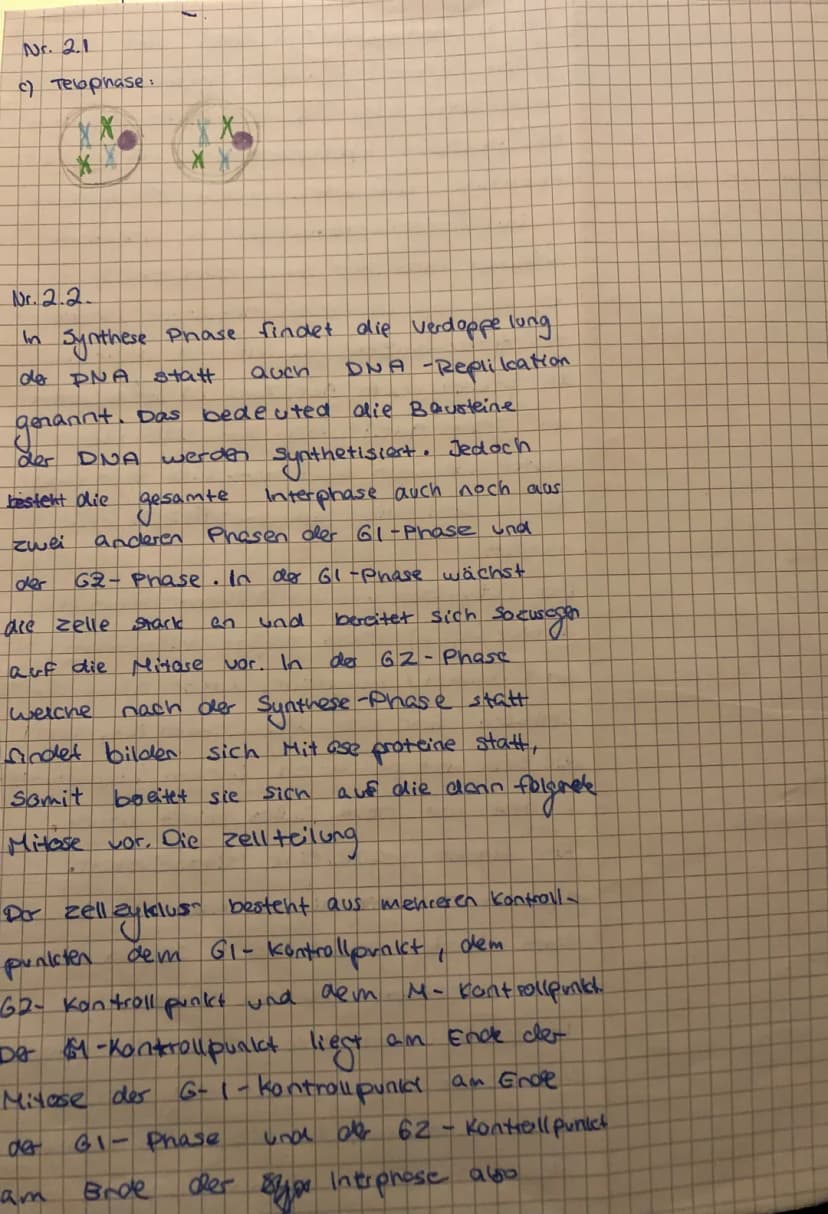 Nr. 2.1
c) Telophase:
Nr. 2.2.
In Synthese Phase findet die Verdoppelung
der DNA statt auch DNA-Replikation
genannt. Das bedeuted die Bausteine
der DNA werden synthetisiert. Jedoch
besteht die gesamte Interphase auch noch aus
zwei anderen Phasen der G1-Phase und
der G2-Phase. In der G1-Phase wächst
die Zelle stark an und bereitet sich sozusagen
auf die Mitose vor. In der G2-Phase
welche nach der Synthese-Phase statt
findet bilden sich Mitose proteine statt,
somit bereitet sie sich auf die dann folgende
Mitose vor. Die Zellteilung
Der Zellzyklus besteht aus mehreren Kontroll-
punkten dem G1-Kontrollpunkt, dem
G2-Kontrollpunkt und dem M-Kontrollpunkt.
Der M-Kontrollpunkt liegt am Ende der
Mitose der G-1-Kontrollpunkt am Ende
der G1-Phase und der G2-Kontrollpunkt
am Ende der Interphase also